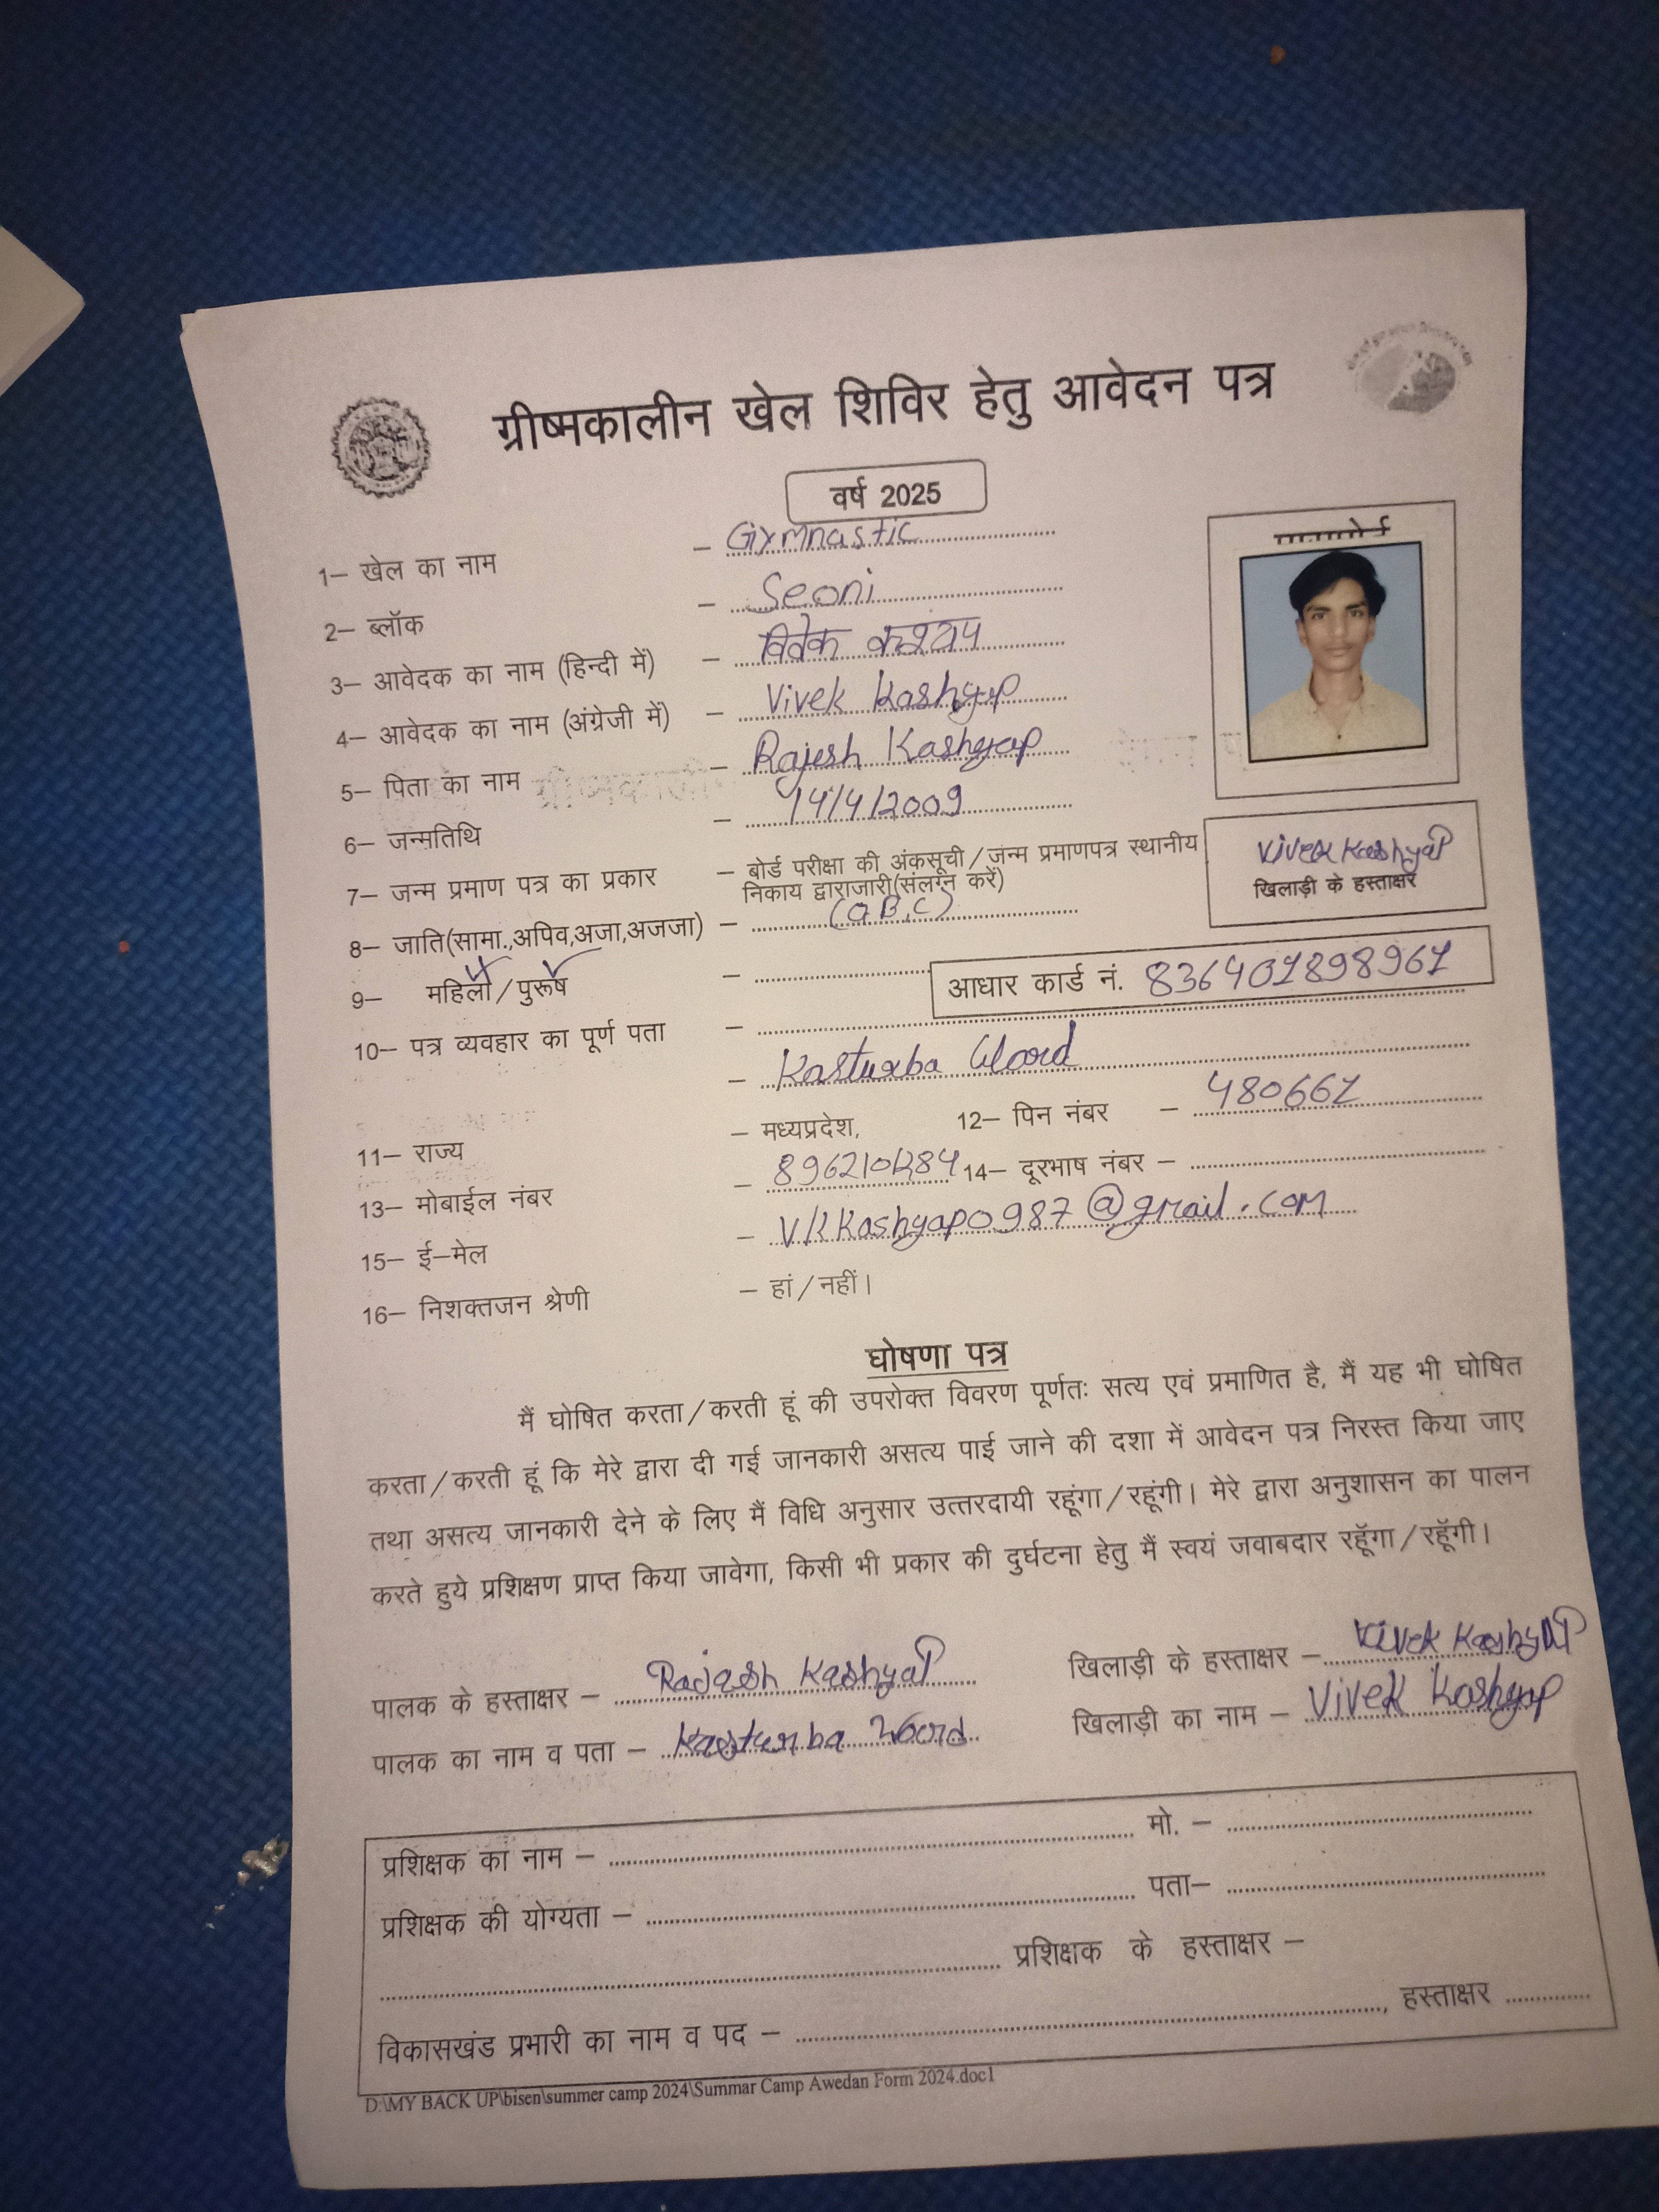 ग्रीष्मकालीन खेल शिविर हेतु आवेदन पत्र
वर्ष 2025
1– खेल का नाम – Gymnastic
2– ब्लॉक – Seoni
3– आवेदक का नाम (हिन्दी में) – विवेक कश्यप
4– आवेदक का नाम (अंग्रेजी में) – Vivek Kashyap
5– पिता का नाम – Rajesh Kashyap
6– जन्मतिथि – 14/4/2009
7– जन्म प्रमाण पत्र का प्रकार – बोर्ड परीक्षा की अंकसूची/जन्म प्रमाणपत्र स्थानीय
निकाय द्वाराजारी(संलग्न करें)
Vivek Kashyap
खिलाड़ी के हस्ताक्षर
8– जाति(सामा.,अपिव,अजा,अजजा) – (O B.C)
9– महिला/पुरूष –
आधार कार्ड नं. 836401898961
10– पत्र व्यवहार का पूर्ण पता –
– Kasturba Ward
11– राज्य – मध्यप्रदेश, 12– पिन नंबर – 480661
13– मोबाईल नंबर – 8962101284 14– दूरभाष नंबर –
15– ई–मेल – VKKashyap0987@gmail.com
16– निशक्तजन श्रेणी – हां/नहीं।
घोषणा पत्र
मैं घोषित करता/करती हूं की उपरोक्त विवरण पूर्णतः सत्य एवं प्रमाणित है, मैं यह भी घोषित
करता/करती हूं कि मेरे द्वारा दी गई जानकारी असत्य पाई जाने की दशा में आवेदन पत्र निरस्त किया जाए
तथा असत्य जानकारी देने के लिए मैं विधि अनुसार उत्तरदायी रहूंगा/रहूंगी। मेरे द्वारा अनुशासन का पालन
करते हुये प्रशिक्षण प्राप्त किया जावेगा, किसी भी प्रकार की दुर्घटना हेतु मैं स्वयं जवाबदार रहूॅगा/रहूॅगी।
पालक के हस्ताक्षर – Rajesh Kashyap खिलाड़ी के हस्ताक्षर – Vivek Kashyap
पालक का नाम व पता – Kasturba Word खिलाड़ी का नाम – Vivek Kashyap
प्रशिक्षक का नाम – मो. –
प्रशिक्षक की योग्यता – पता–
प्रशिक्षक के हस्ताक्षर –
विकासखंड प्रभारी का नाम व पद – , हस्ताक्षर
D:\MY BACK UP\bisen\summer camp 2024\Summar Camp Awedan Form 2024.doc1